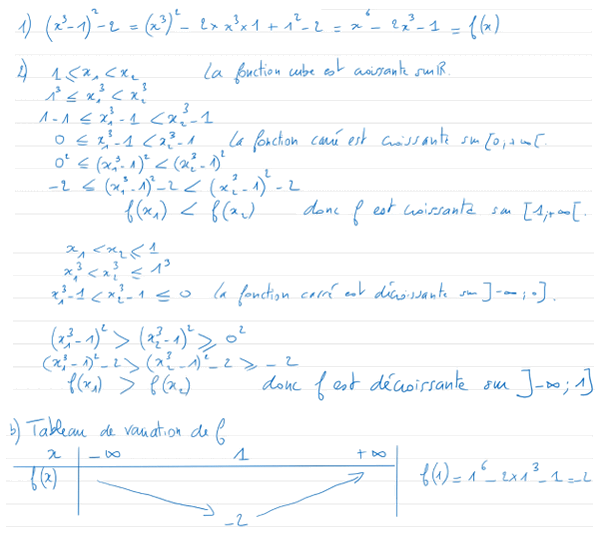 1) (x³-1)²-2 = (x³)² - 2×x³×1 + 1²-2 = x⁶ - 2x³-1 = f(x)
2) 1 ⩽ x₁ < x₂ La fonction cube est croissante sur ℝ.
1³ ⩽ x₁³ < x₂³
1-1 ⩽ x₁³-1 < x₂³-1
0 ⩽ x₁³-1 < x₂³-1 La fonction carré est croissante sur [0,+∞[.
0² ⩽ (x₁³-1)² < (x₂³-1)²
-2 ⩽ (x₁³-1)²-2 < (x₂³-1)²-2
f(x₁) < f(x₂) donc f est croissante sur [1,+∞[.
x₁ < x₂ ⩽ 1
x₁³ < x₂³ ⩽ 1³
x₁³-1 < x₂³-1 ⩽ 0 la fonction carré est décroissante sur ]-∞;0].
(x₁³-1)² > (x₂³-1)² ⩾ 0²
(x₁³-1)²-2 > (x₂³-1)²-2 ⩾ -2
f(x₁) > f(x₂) donc f est décroissante sur ]-∞;1]
3) Tableau de variation de f
x -∞ 1 +∞
f(x) f(1) = 1⁶-2×1³-1 = -2
-2